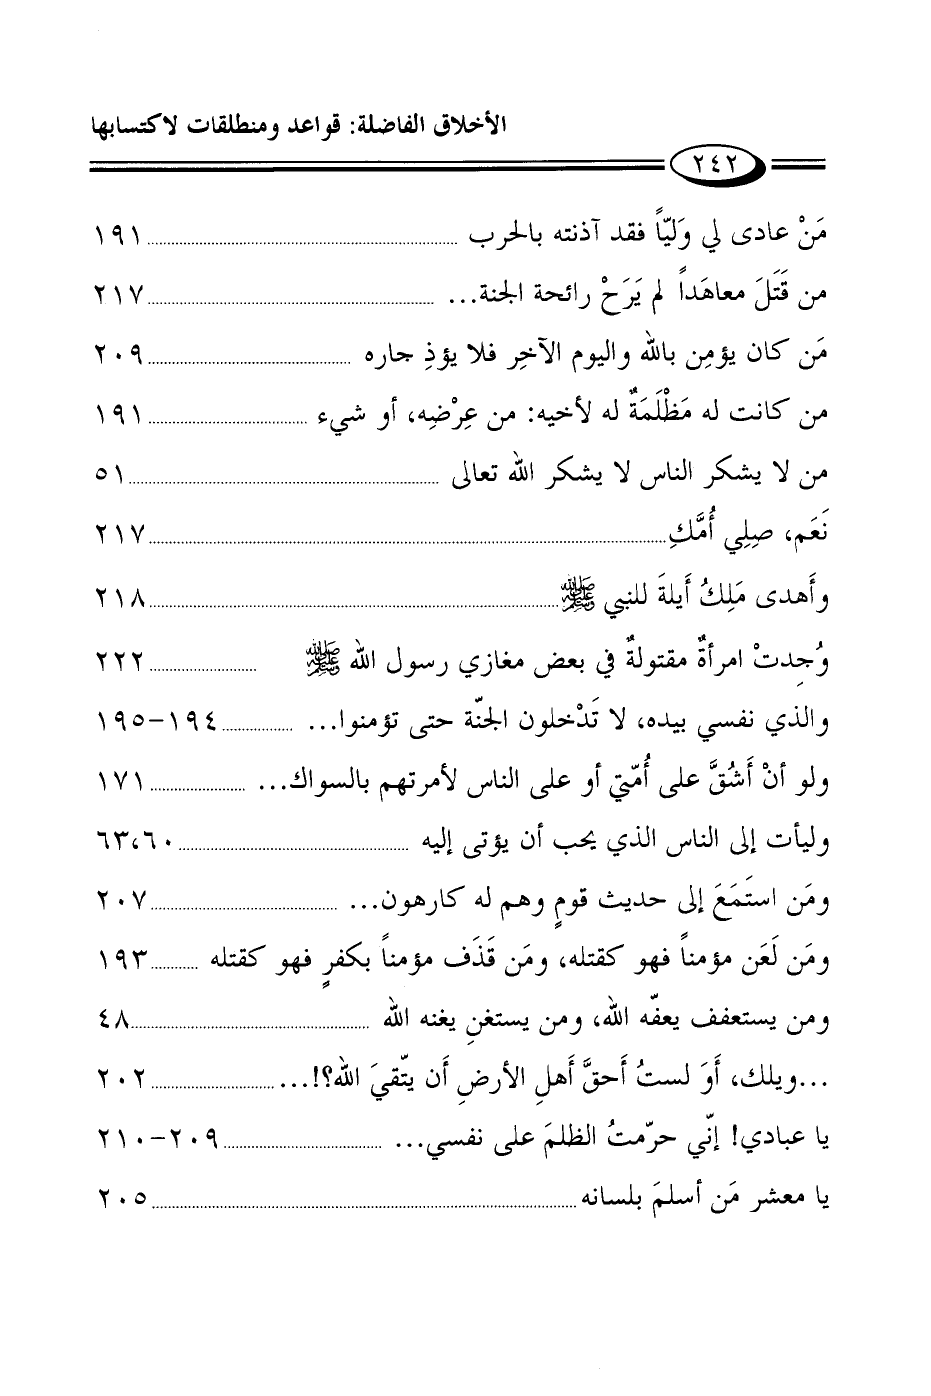 الأخلاق الفاضلة: قواعد ومنطلقات لاكتسابها
٢٤٢
مَنْ عادى لي وَليّاً فقد آذنته بالحرب ........ ١٩١
من قَتَلَ معاهَداً لم يَرَحْ رائحة الجنة... ........ ٢١٧
مَن كان يؤمِن بالله واليوم الآخِر فلا يؤذِ جاره ........ ٢٠٩
من كانت له مَظْلَمَةٌ له لأخيه: من عِرْضِه، أو شيء ........ ١٩١
من لا يشكر الناس لا يشكر الله تعالى ........ ٥١
نَعَم، صِلِي أُمَّكِ ........ ٢١٧
وأَهدى مَلِكُ أَيلةَ للنبي ﷺ ........ ٢١٨
وُجِدتْ امرأةٌ مقتولةٌ في بعض مغازي رسول الله ﷺ ........ ٢٢٢
والذي نفسي بيده، لا تَدْخلون الجنّة حتى تؤمنوا... ........ ١٩٤-١٩٥
ولو أنْ أَشُقَّ على أُمّتي أو على الناس لأمرتهم بالسواك... ........ ١٧١
وليأت إلى الناس الذي يحب أن يؤتى إليه ........ ٦٣،٦٠
ومَن استَمَعَ إلى حديث قومٍ وهم له كارهون... ........ ٢٠٧
ومَن لَعَن مؤمناً فهو كقتله، ومَن قَذَف مؤمناً بكفرٍ فهو كقتله ........ ١٩٣
ومن يستعفف يعفّه الله، ومن يستغنِ يغنه الله ........ ٤٨
...ويلك، أَوَ لستُ أَحقَّ أَهلِ الأرضِ أَن يتّقيَ الله؟!... ........ ٢٠٢
يا عبادي! إنّي حرّمتُ الظلمَ على نفسي... ........ ٢٠٩-٢١٠
يا معشر مَن أسلمَ بلسانه ........ ٢٠٥